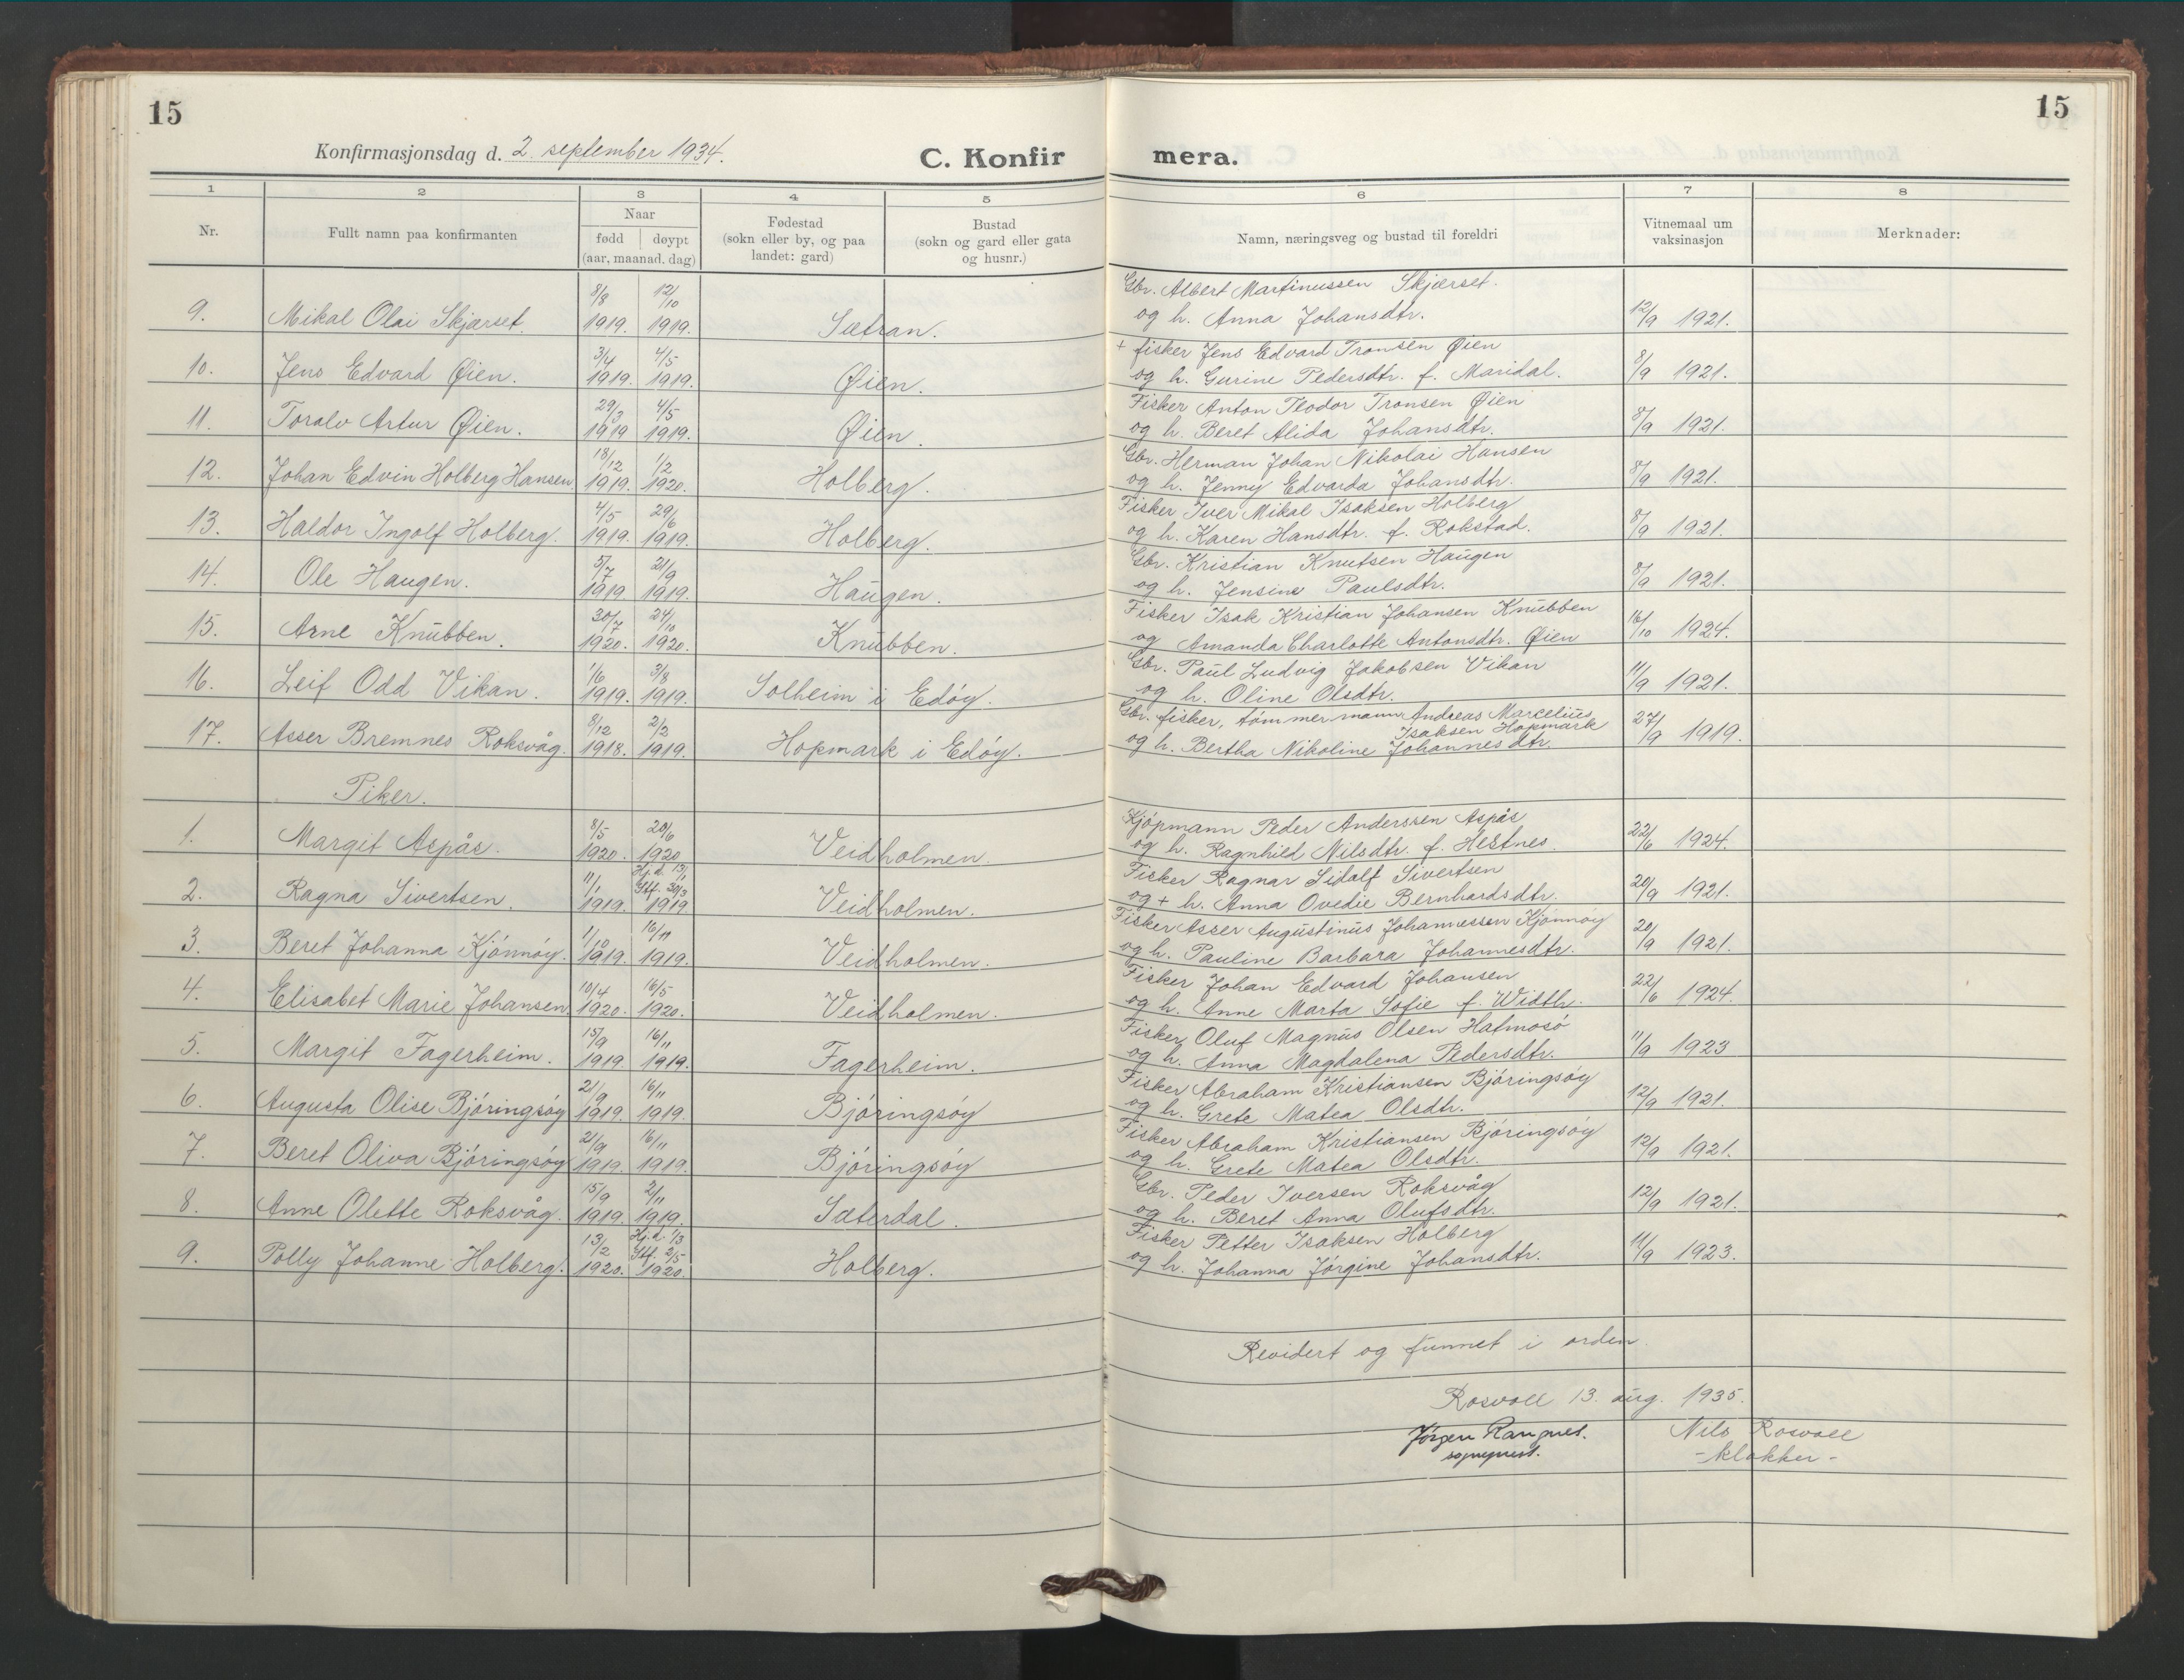 15
15
Konfirmasjonsdag d. 2. september 1934.
C. Konfir mera.
1 2 3 4 5 6 7 8
Nr.
Fullt namn paa konfirmanten
Naar
fødd døypt
(aar, maanad, dag)
Fødestad
(sokn eller by, og paa
landet: gard)
Bustad
(sokn og gard eller gata
og husnr.)
Namn, næringsveg og bustad til foreldri
Vitnemaal um
vaksinasjon
Merknader:
9. Mikal Olai Skjærset. 8/8 1919. 12/10 1919. Sætran. Gbr. Albert Martinussen Skjærset.
og h. Anna Johansdtr. 12/9 1921.
10. Jens Edvard Øien. 3/4 1919. 4/5 1919. Øien. + fisker Jens Edvard Tronsen Øien
og h. Gurine Pedersdtr. f. Maridal. 8/9 1921.
11. Toralv Artur Øien. 29/3 1919 4/5 1919. Øien. Fisker Anton Teodor Tronsen Øien
og h. Beret Alida Johansdtr. 8/9 1921.
12. Johan Edvin Holberg Hansen. 18/12 1919. 1/2 1920. Holberg. Gbr. Herman Johan Nikolai Hansen
og h. Jenny Edvarda Johansdtr. 8/9 1921.
13. Haldor Ingolf Holberg. 4/5 1919. 29/6 1919. Holberg. Fisker Iver Mikal Isaksen Holberg
og h. Karen Hansdtr. f. Rokstad. 8/9 1921.
14. Ole Haugen. 5/7 1919 21/9 1919. Haugen. Gbr. Kristian Knutsen Haugen
og h. Jensine Paulsdtr. 8/9 1921.
15. Arne Knubben. 30/7 1920. 24/10 1920. Knubben. Fisker Isak Kristian Johansen Knubben
og Amanda Charlotte Antonsdtr. Øien 16/10 1924.
16. Leif Odd Vikan. 1/6 1919. 3/8 1919. Solheim i Edöy. Gbr. Paul Ludvig Jakobsen Vikan
og h. Oline Olsdtr. 11/9 1921.
17. Asser Bremnes Roksvåg. 8/12 1918. 2/2 1919. Hopmark i Edöy. Gbr. fisker, tömmermann Andreas Marcelius
Isaksen Hopmark
og h. Bertha Nikoline Johannesdtr. 27/9 1919.
Piker.
1. Margit Aspås. 8/5 1920. 20/6 1920 Veidholmen. Kjöpmann Peder Anderssen Aspås
og h. Ragnhild Nilsdtr. f. Hestnes. 22/6 1924.
2. Ragna Sivertsen. 11/1 1919. Hj.d. 13/1 Stf. 30/3 1919 Veidholmen. Fisker Ragnar Sidolf Sivertsen
og + h. Anna Ovedie Bernhardsdtr. 20/9 1921.
3. Beret Johanna Kjönnöy. 1/10 1919. 16/11 1919. Veidholmen. Fisker Asser Augustinus Johannessen Kjönnöy
og h. Pauline Barbara Johannesdtr. 20/9 1921.
4. Elisabet Marie Johansen 10/4 1920. 16/5 1920. Veidholmen. Fisker Johan Edvard Johansen
og h. Anne Marta Sofie f. Width. 22/6 1924.
5. Margit Fagerheim. 15/9 1919. 16/11 1919. Fagerheim. Fisker Oluf Magnus Olsen Hatmosö
og h. Anna Magdalena Pedersdtr. 11/9 1923
6. Augusta Olise Björingsöy 21/9 1919. 16/11 1919. Björingsöy Fisker Abraham Kristiansen Björingsöy
og h. Grete Matea Olsdtr. 12/9 1921.
7. Beret Oliva Björingsöy 21/9 1919. 16/11 1919. Björingsöy Fisker Abraham Kristiansen Björingsöy
og h. Grete Matea Olsdtr. 12/9 1921.
8. Anne Olette Roksvåg. 15/9 1919. 2/11 1919. Sæterdal. Gbr. Peder Iversen Roksvåg
og h. Beret Anna Olufsdtr. 12/9 1921.
9. Polly Johanne Holberg. 13/2 1920. Hj.d. 1/3 Stf. 2/5 1920. Holberg. Fisker Petter Isaksen Holberg
og h. Johanna Jörgine Johansdtr. 11/9 1923.
Revidert og funnet i orden.
Rosvoll 13. aug. 1935.
Jörgen
sogneprest.
Nils Rosvoll
- klokker -